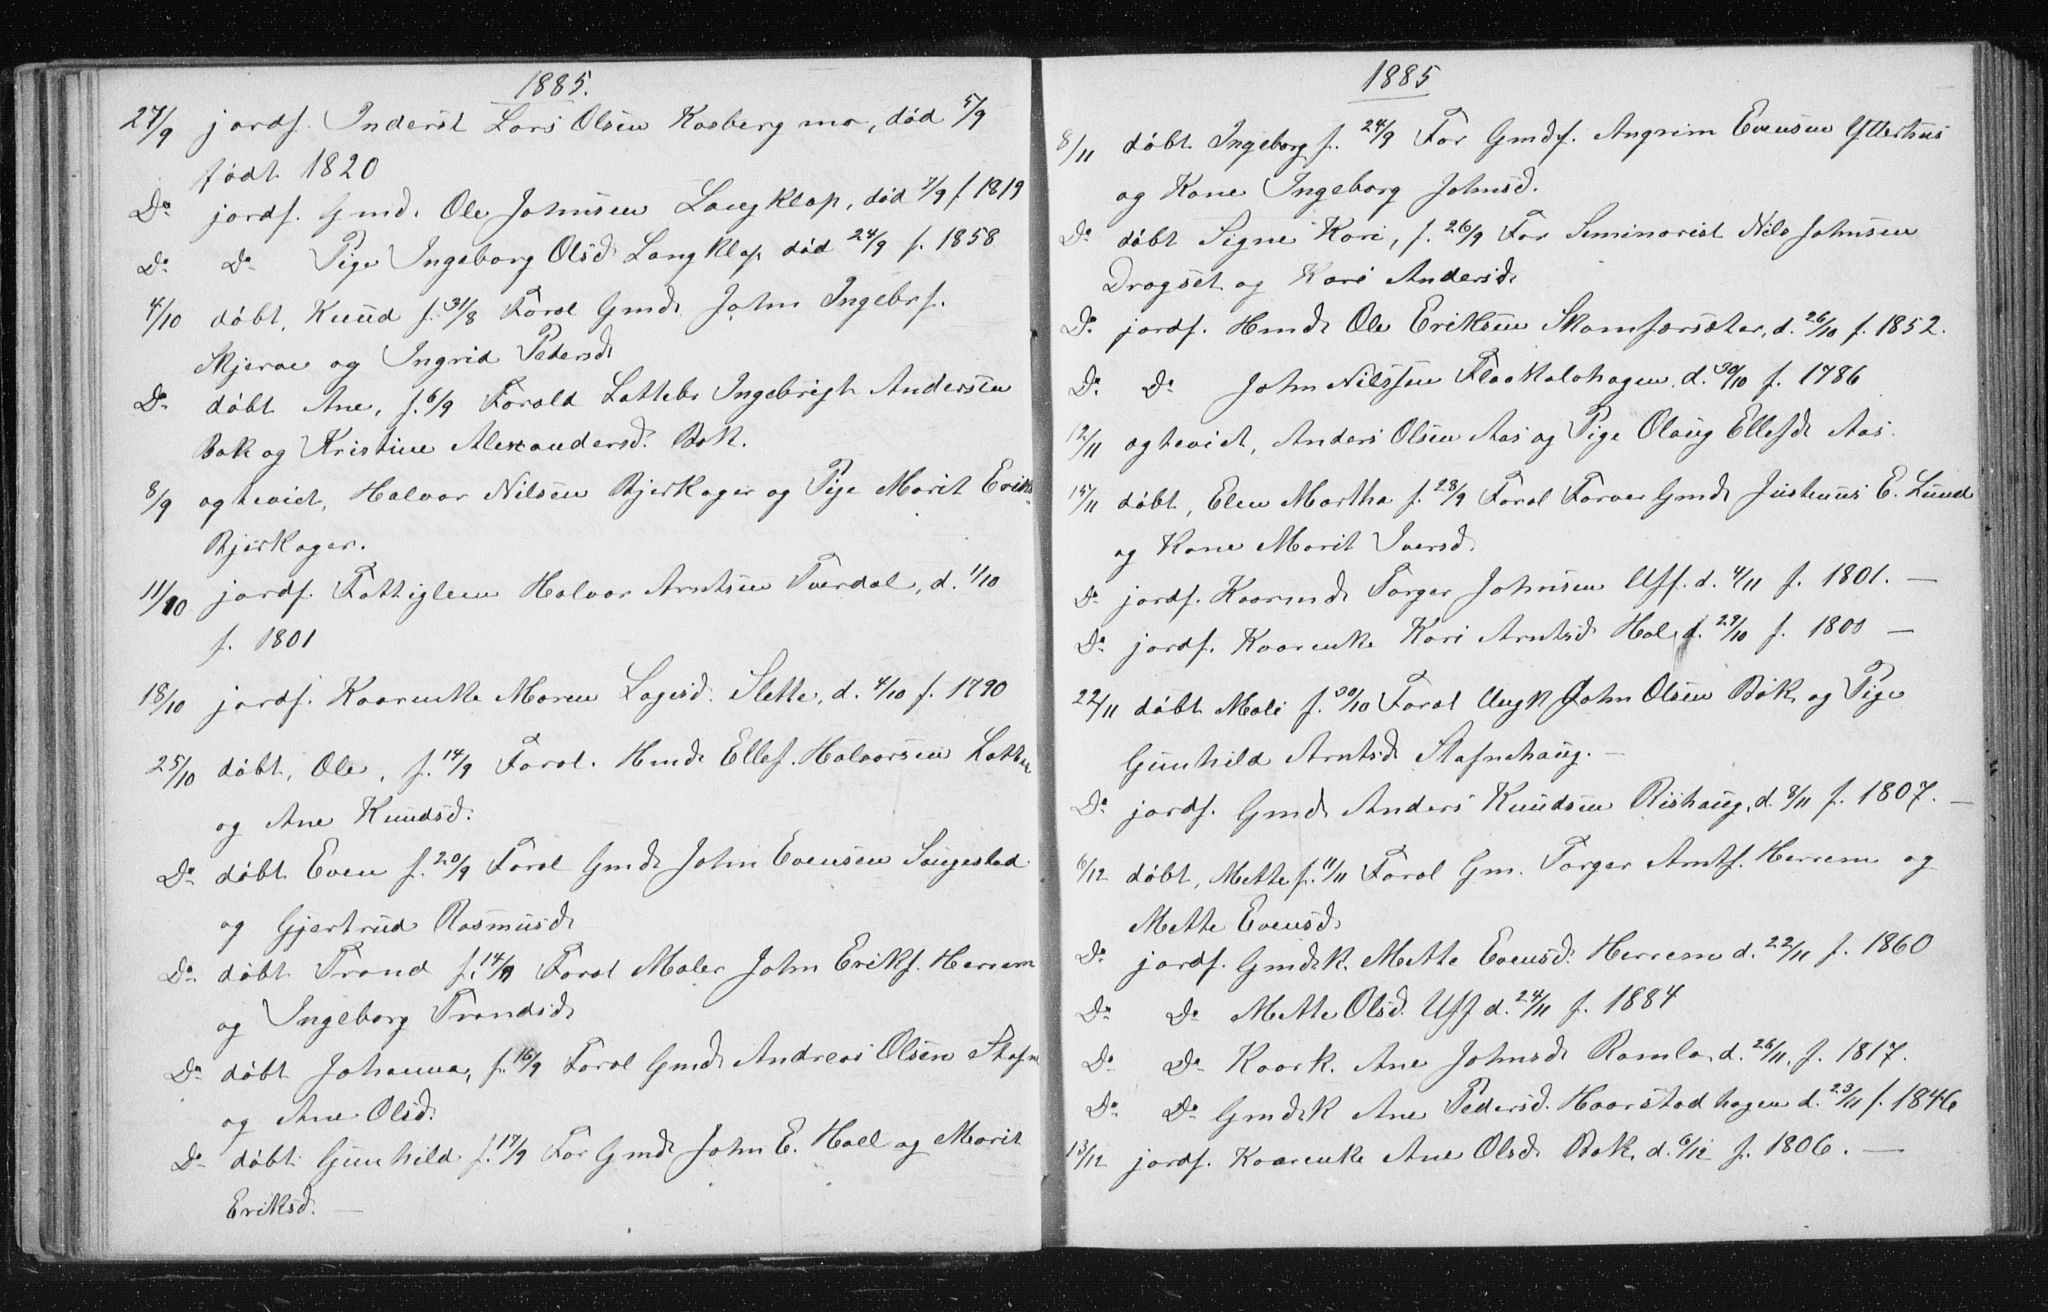 1885.
27/9 jordf. Inderst Lars Olsen Kosberg mo, død 5/9
født 1820
Do jordf. Gmd. Ole Johnsen Langklop, død 7/9 f. 1819
Do Do Pige Ingeborg Olsd Langklop død 24/9 f. 1858
4/10 døbt, Knud f. 31/8 Foræl Gmd. John Ingebrf.
Skjerve og Ingrid Pedersd
Do døbt Ane, f. 6/9 Foræld Ingebrigt Andersen
Bak og Kristine Alexandersd. Bak.
8/9 ægteviet, Halvor Nilsen Bjerkager og Pige Marit Eriks
Bjerkager.
11/10 jordf. Fattiglem Halvor Arntsen Tverdal, d. 1/10
f. 1801
18/10 jordf. Kaarenke Maren Lagesd. Slette, d. 4/10 f. 1790
25/10 døbt, Ole, f. 14/9 Foræl. Hmd Ellef Halvorsen
og Ane Knudsd.
Do døbt Even f. 20/9 Foræl Gmd John Evensen Sugestad
og Gjertrud Rasmusd
Do døbt Trond f. 14/9 Foræl Maler John Erikf. Herrem
og Ingeborg Trondsd
Do døbt Johanna, f. 16/9 Foræl Gmd Andreas Olsen Stafne
og Ane Olsd.
Do døbt Gunhild f. 17/9 For Gmd John E. Holl og Marit
Eriksd. —
1885
8/11 døbt Ingeborg f. 24/9 For Gmdf. Angrim Evensen Ytterhus
og Kone Ingeborg Johnsd.
Do døbt Signe Kari, f. 26/9 For Seminarist Nils Johnsen
Dragset og Kari Andersd
Do jordf. Hmd Ole Eriksen Skamfærsæter, d. 26/10 f. 1852.
Do Do John Nilssen Flaakalohagen, d. 30/10 f. 1786
12/11 ægteviet, Anders Olsen Aas og Pige Olaug Ellefsd Aas.
15/11 døbt, Elen Martha f. 28/9 Foræl Farver Gmd Justnus E. Lund
og Kone Marit Iversd.
Do jordf. Kaarmd Torger Johnsen Uff. d. 4/11 f. 1801. —
Do jordf. Kaarenke Kari Arntsd Hol, d. 29/10 f. 1800 —
22/11 døbt Mali f. 30/10 Foræl Ungk John Olsen Bak og Pige
Gunhild Arntsd Stafnehaug. —
Do jordf. Gmd Anders Knudsen Rishaug, d. 8/11 f. 1807. —
6/12 døbt, Mette f. 11/11 Foræl Gm. Torger Arntf. Herrem og
Mette Evensd
Do jordf. Gmdsk. Mette Evensd. Herrem d. 22/11 f. 1860
Do Do Mette Olsd. Uff d. 24/11 f. 1884
Do Do Kaark. Ane Johnsd Ramlo, d. 26/11. f. 1817.
Do Do Gmdsk Ane Pedersd. Haarstadhagen d. 23/11 f. 1846
13/12 jordf. Kaarenke Ane Olsd Bak d. 6/12 f. 1806. —